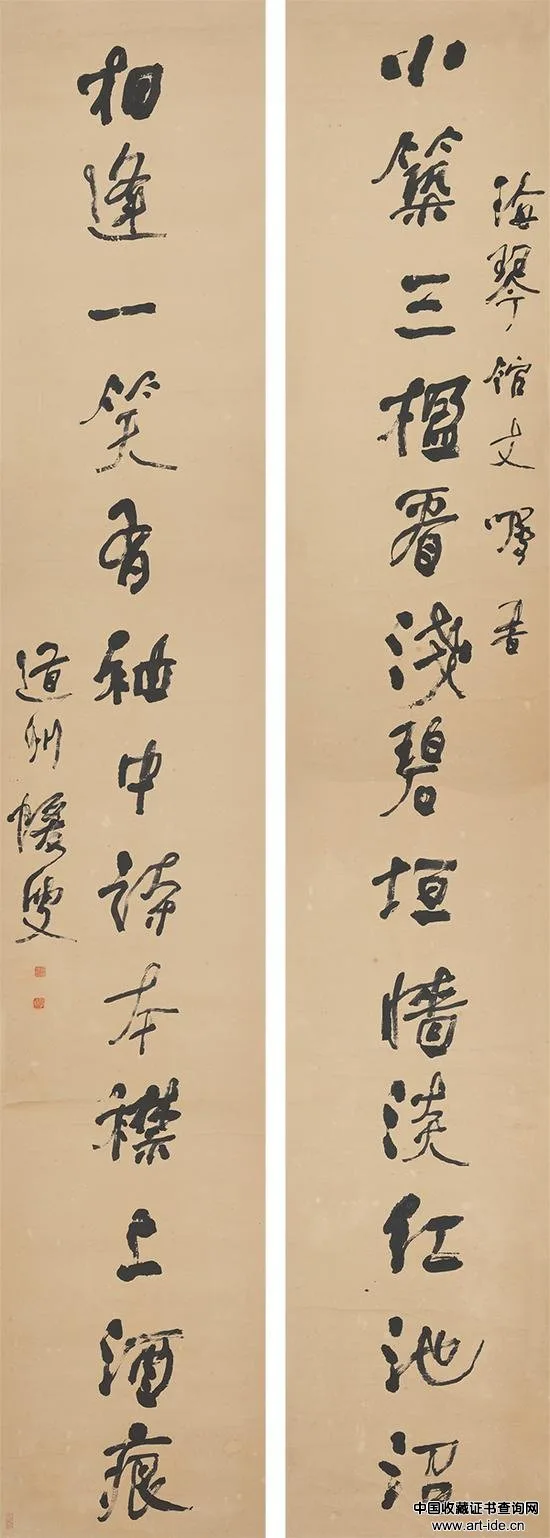 海琴館丈囑書
小築三楹看淺碧垣墻淡紅池沼
相逢一笑有袖中詩本襟上酒痕
道州蝯叟
中国收藏证书查询网
www.art-ide.cn